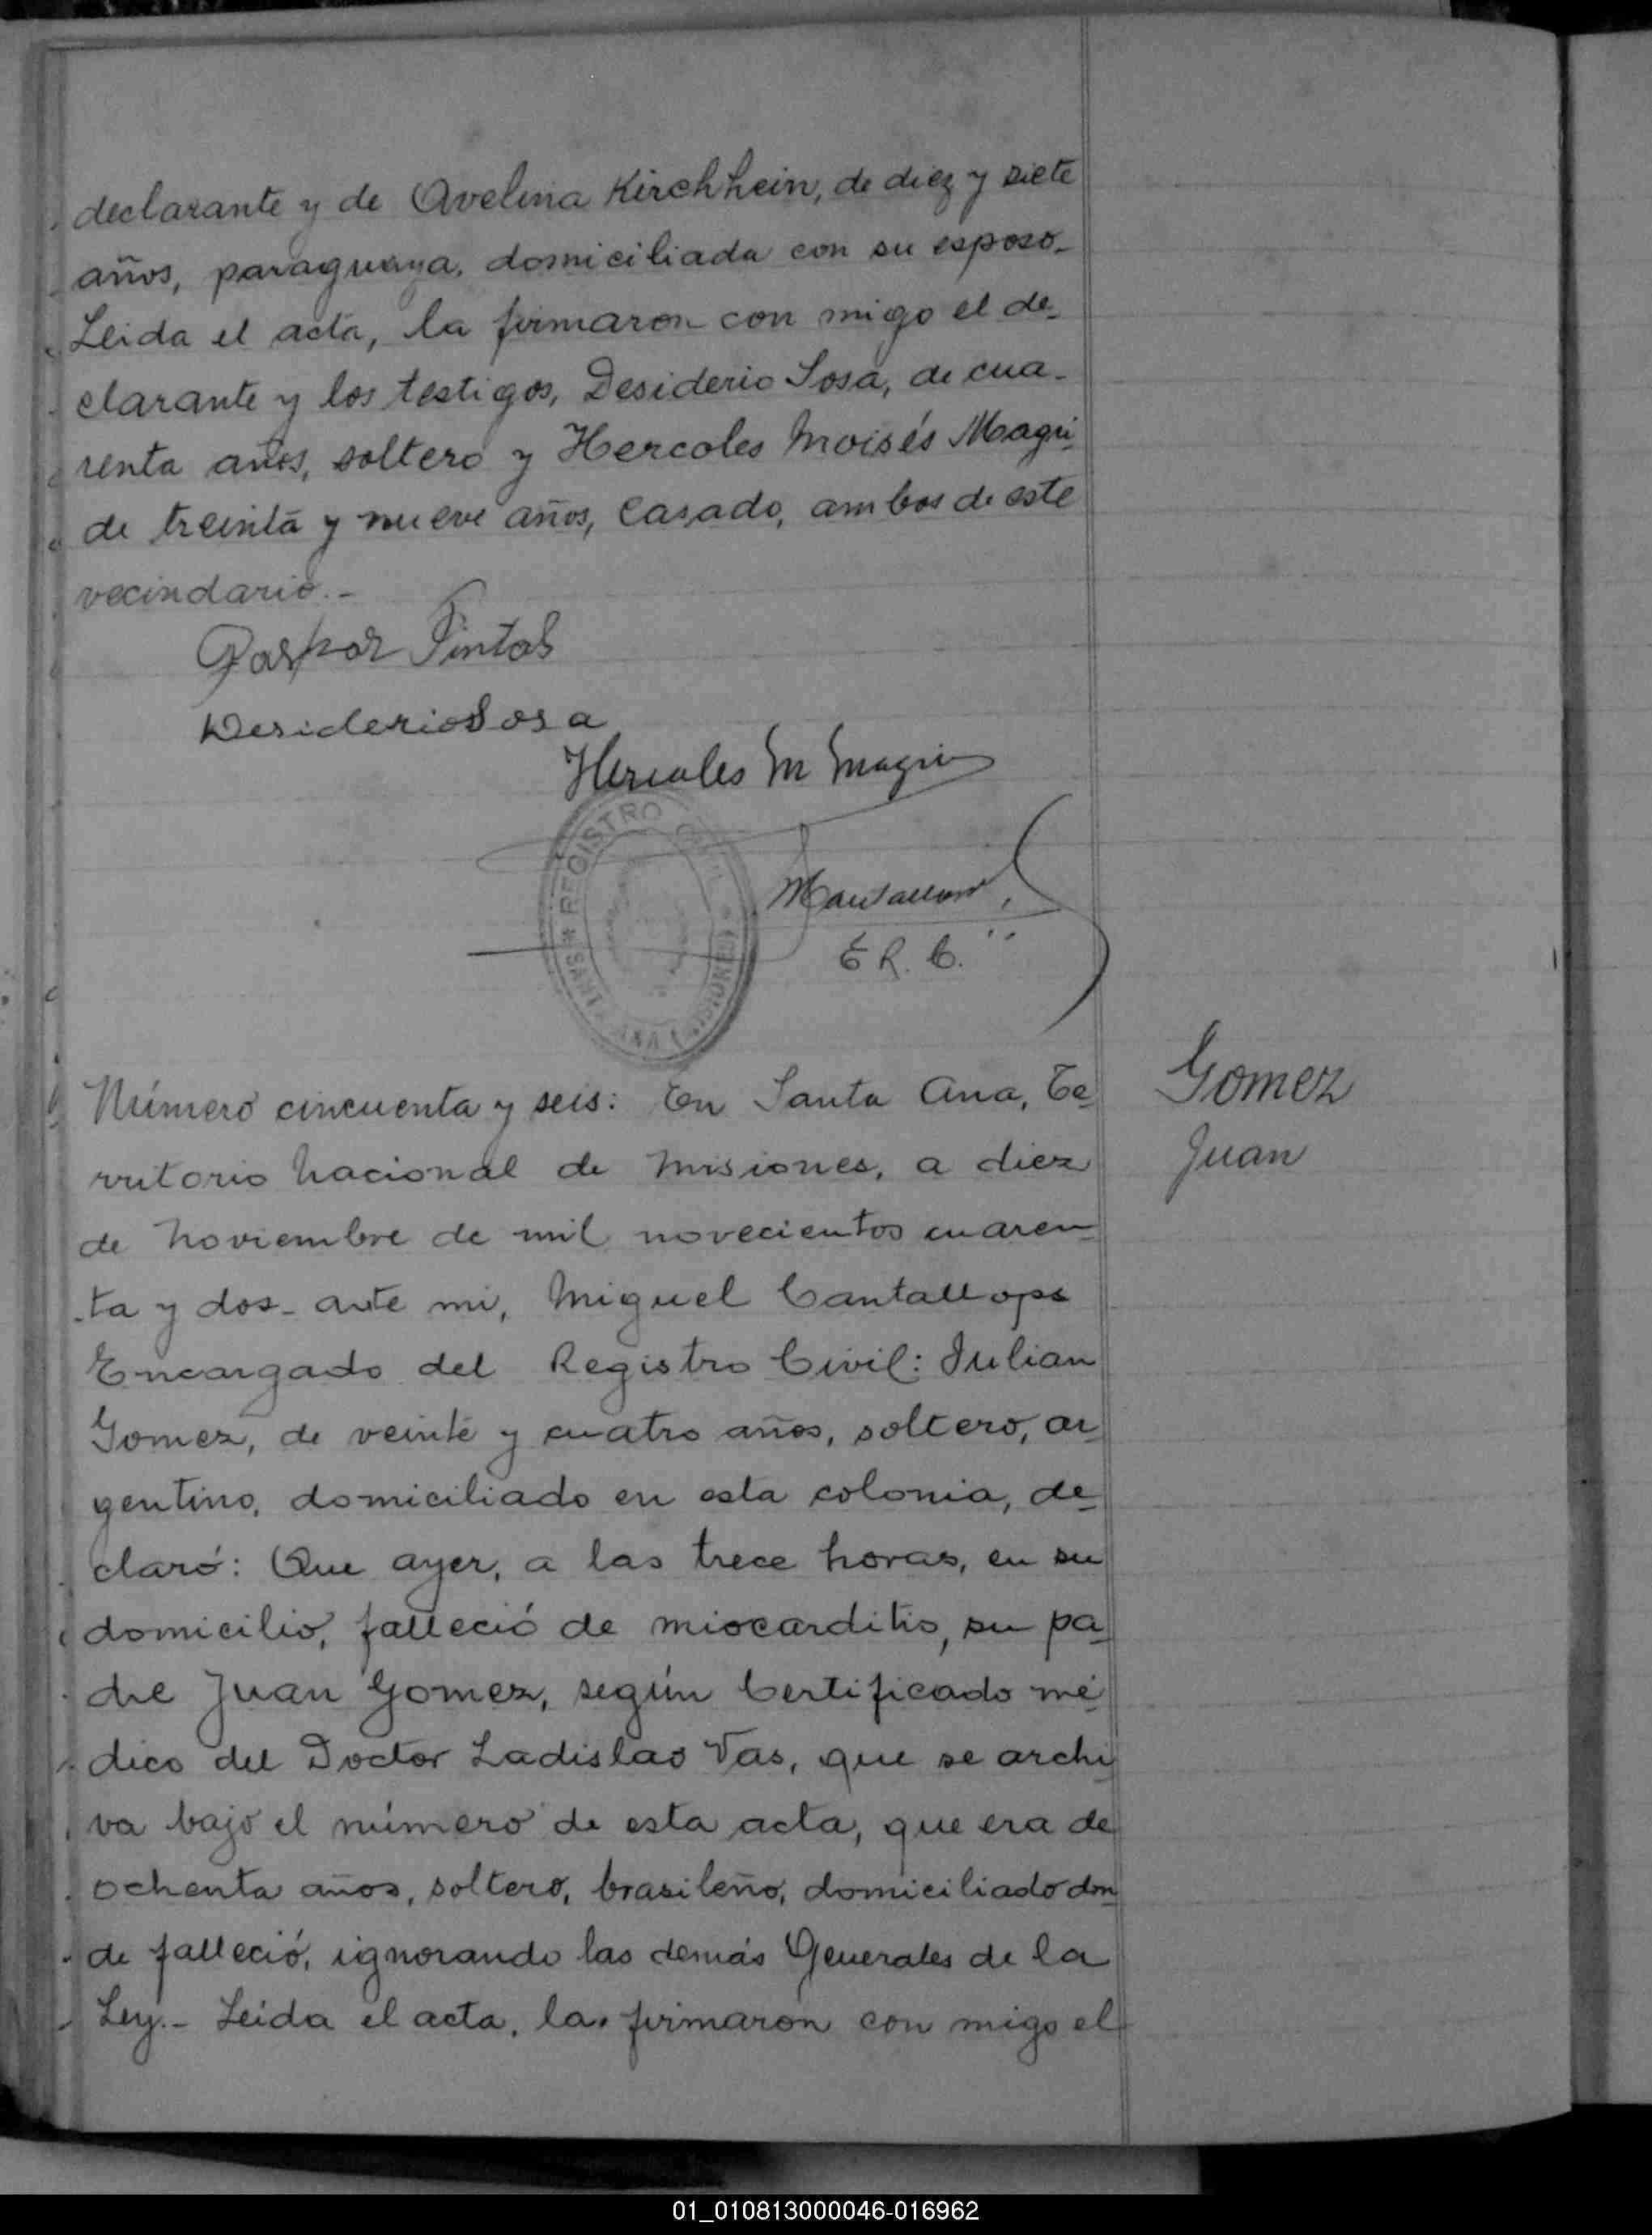 declarante y de Avelina Kirchhein, de diez y siete
años, paraguaya, domiciliada con su esposo.
Leida el acta, la firmaron con migo el de_
clarante y los testigos, Desiderio Sosa, de cua_
renta años, soltero y Hercoles Moisés Magri
de treinta y nueve años, Casado, ambos de este
vecindario.-
Gaspar Pintos
Desiderio Sosa
Hercoles M Magri
* REGISTRO CIVIL *
SANTA ANA (MISIONES)
E R. C.
Número cincuenta y seis: En Santa Ana, Te
rritorio Nacional de Misiones, a diez
de Noviembre de mil novecientos cuaren_
ta y dos_ ante mi, Miguel Cantallops
Encargado del Registro Civil: Julian
Gomez, de veinte y cuatro años, soltero, ar_
gentino, domiciliado en esta colonia, de_
claró: Que ayer, a las trece horas, en su
domicilio, falleció de miocarditis, su pa_
dre Juan Gomez, según Certificado mé_
dico del Doctor Ladislao Vas, que se archi_
va bajo el número de esta acta, que era de
ochenta años, soltero, brasileño, domiciliado don_
de falleció, ignorando las demás Generales de la
Ley.- Leida el acta, la firmaron con migo el
Gomez
Juan
01_010813000046-016962